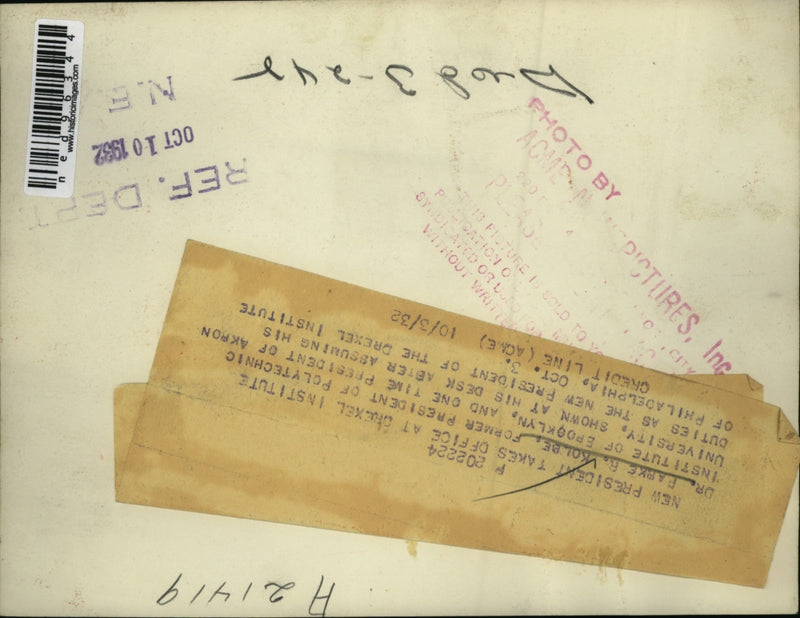 ned96344
www.historicimages.com
N.E.
OCT 10 1932
REF. DEPT.
3-24
PHOTO BY
ACME
PICTURES, Inc.
CITY
THIS PICTURE IS SOLD TO
SYNDICATED OR
WITHOUT
P 202224
NEW PRESIDENT TAKES OFFICE AT DREXEL INSTITUTE
DR. PARKE R. KOLBE, FORMER PRESIDENT OF POLYTECHNIC
INSTITUTE OF BROOKLYN, AND ONE TIME PRESIDENT OF AKRON
UNIVERSITY, SHOWN AT HIS DESK AFTER ASSUMING HIS
DUTIES AS THE NEW PRESIDENT OF THE DREXEL INSTITUTE
OF PHILADELPHIA, OCT. 3.
CREDIT LINE (ACME) 10/3/32
A21419